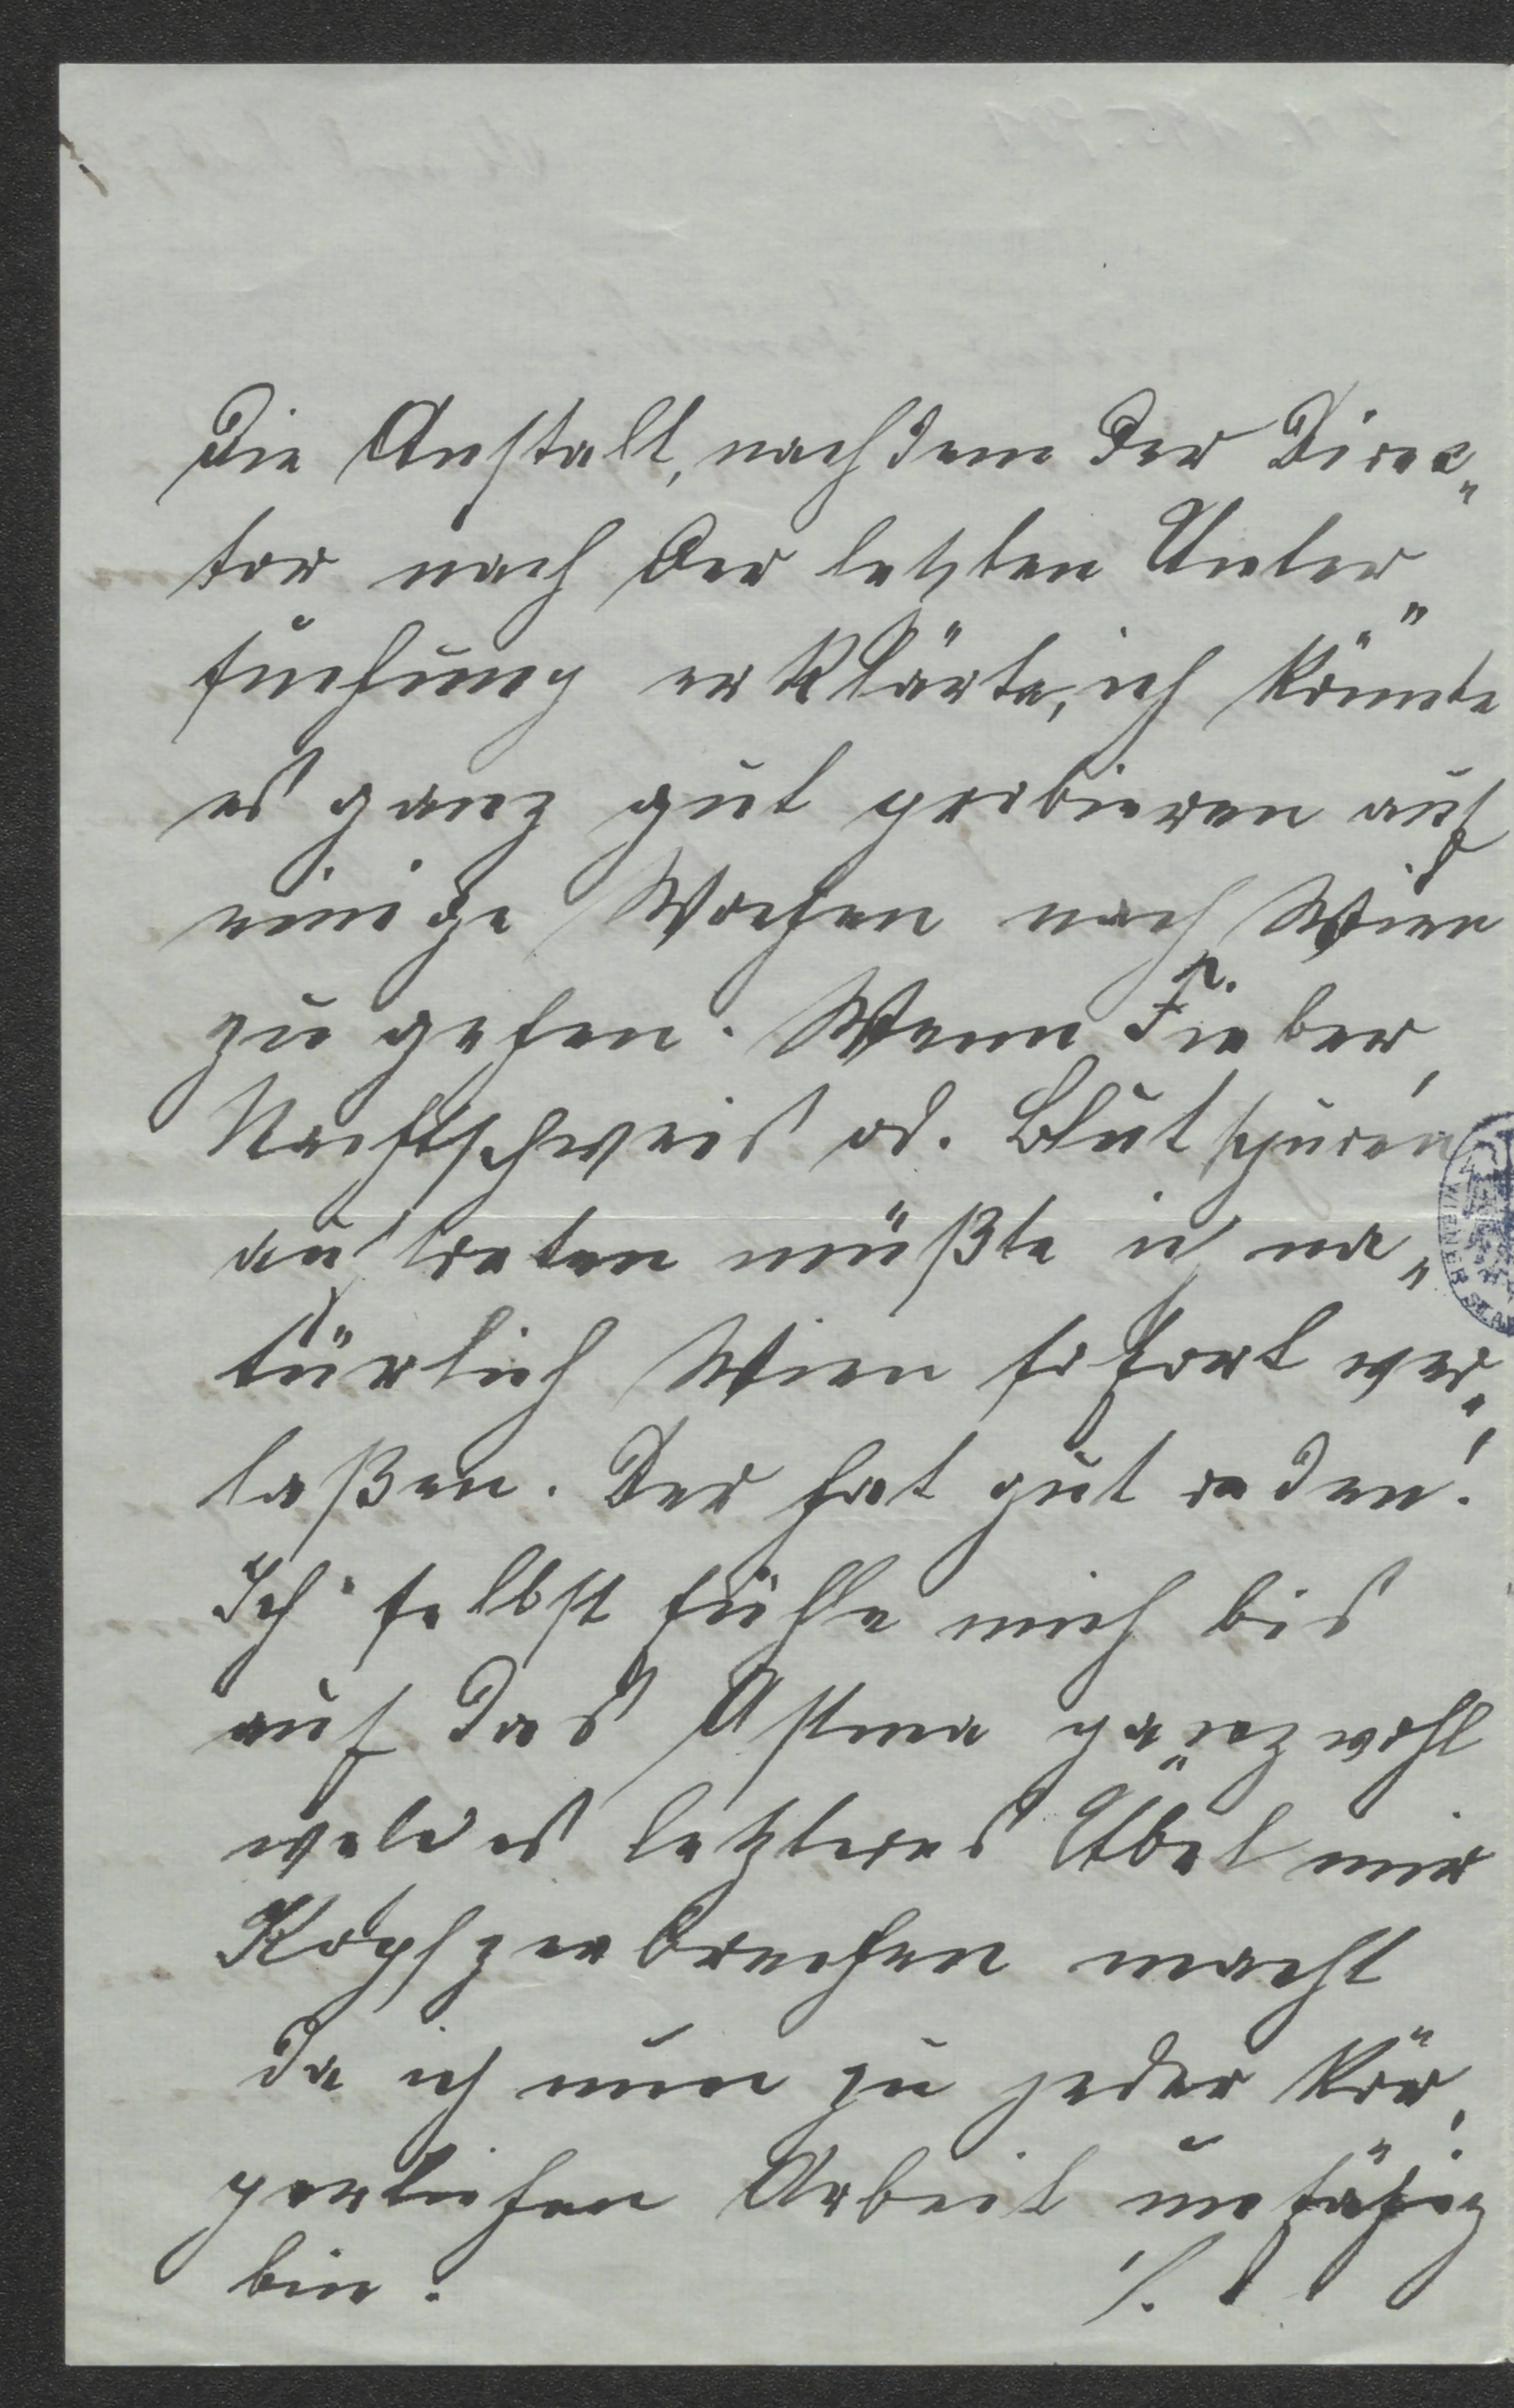 die Anstalt, nachdem der Direc„
tor nach der letzten Unter„
suchung erklärte, ich könnte
es ganz gut probieren auf
einige Wochen nach Wien
zu gehen. Wenn Fieber,
Nachtschweis od. Blutspuren
auftreten müßte ich na„
türlich Wien sofort ver„
laßen. Der hat gut reden!
Ich selbst fühle mich bis
auf das Astma ganz wohl
welches letzteres Übel mir
Kopfzerbrechen macht
da ich nun zu jeder kör„
perlichen Arbeit unfähig
bin. ./.